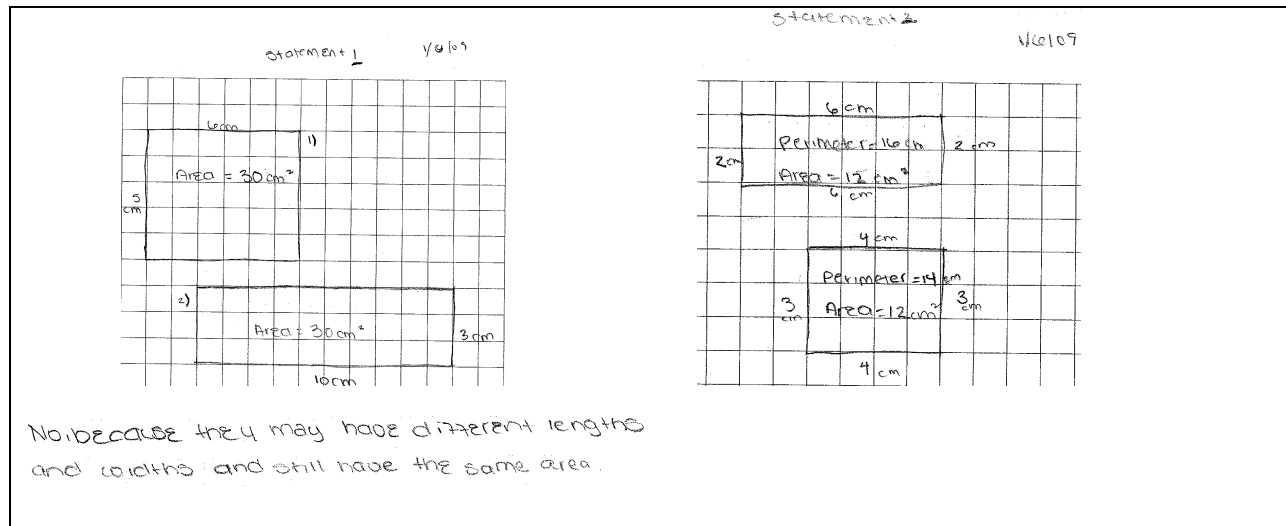 Statement 1 1/6/09
6cm
1)
Area = 30 cm²
5
cm
2)
Area = 30 cm²
3 cm
10cm
No, because they may have different lengths
and widths and still have the same area.
Statement 2
1/6/09
6 cm
Perimeter = 16 cm 2 cm
2cm
Area = 12 cm²
6 cm
4 cm
Perimeter = 14 cm
3
cm
Area = 12 cm²
3
cm
4 cm